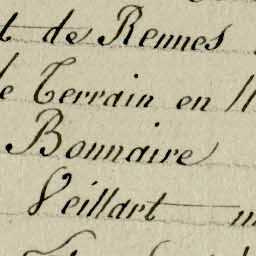 t de Rennes
de Terrain en 11
Bonnaire
Veillart m